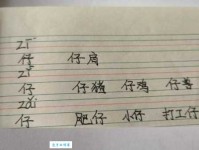 zī
仔 仔肩
zǐ
仔 仔猪 仔鸡 仔兽
zǎi
仔 肥仔 小仔 打工仔